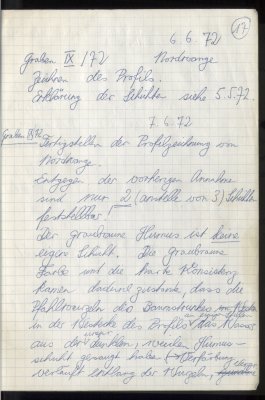 17
6.6.72
Graben IX/72 Nordwange
Zeichnen des Profils.
Erklärung der Schichten siehe 5.5.72.
7.6.72
Graben IX/72 Fertigstellen der Profilzeichnung von
Nordwange.
Entgegen der vorherigen Annahme
sind nur 2 (anstelle von 3) Schichten
feststellbar!
Der graubraune Humus ist keine
eigene Schicht. Die graubraune
Farbe und die starke Konsistenz
kamen dadurch zustande, dass die
Pfahlwurzeln des Baumstrunkes,
in der des Profils das Wasser
aus der dunklen, weichen Humus-
schicht gesaugt haben. Verfärbung
verläuft entlang der Wurzeln,